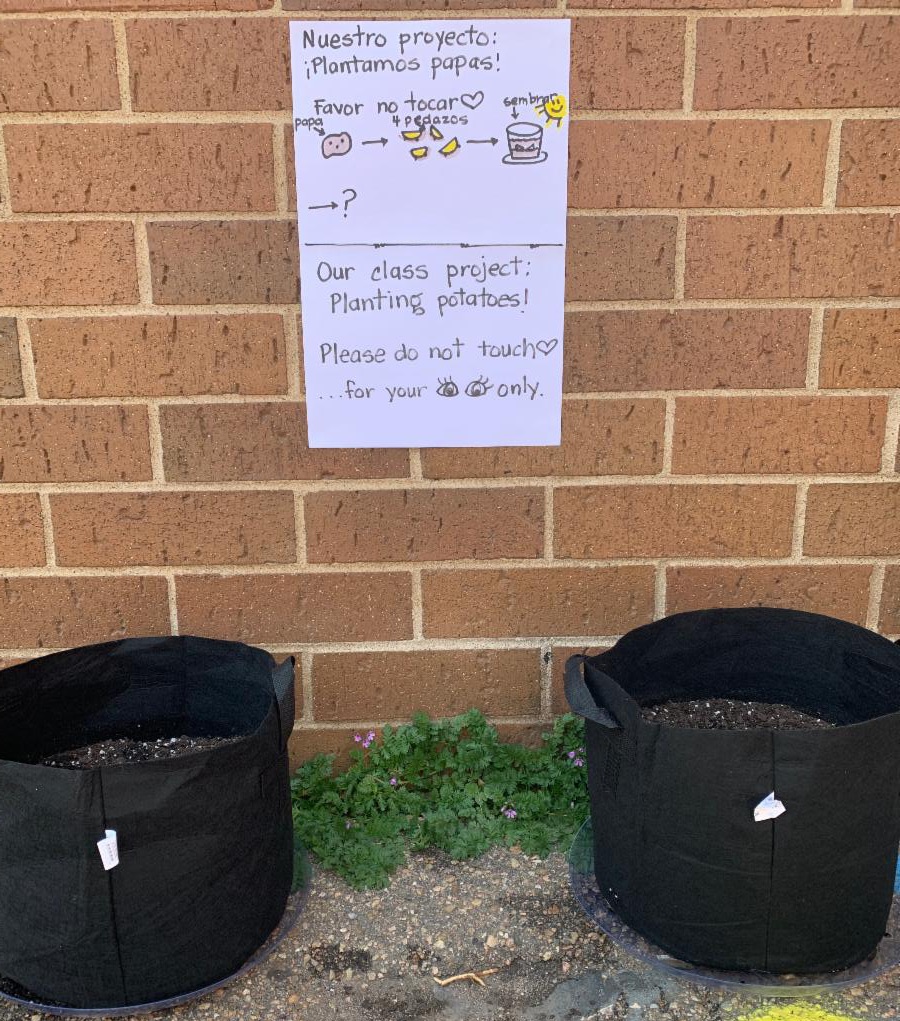 Nuestro proyecto:
¡Plantamos papas!
Favor no tocar♡
papa
4 pedazos
sembrar
→?
Our class project:
Planting potatoes!
Please do not touch♡
...for your 👁 👁 only.